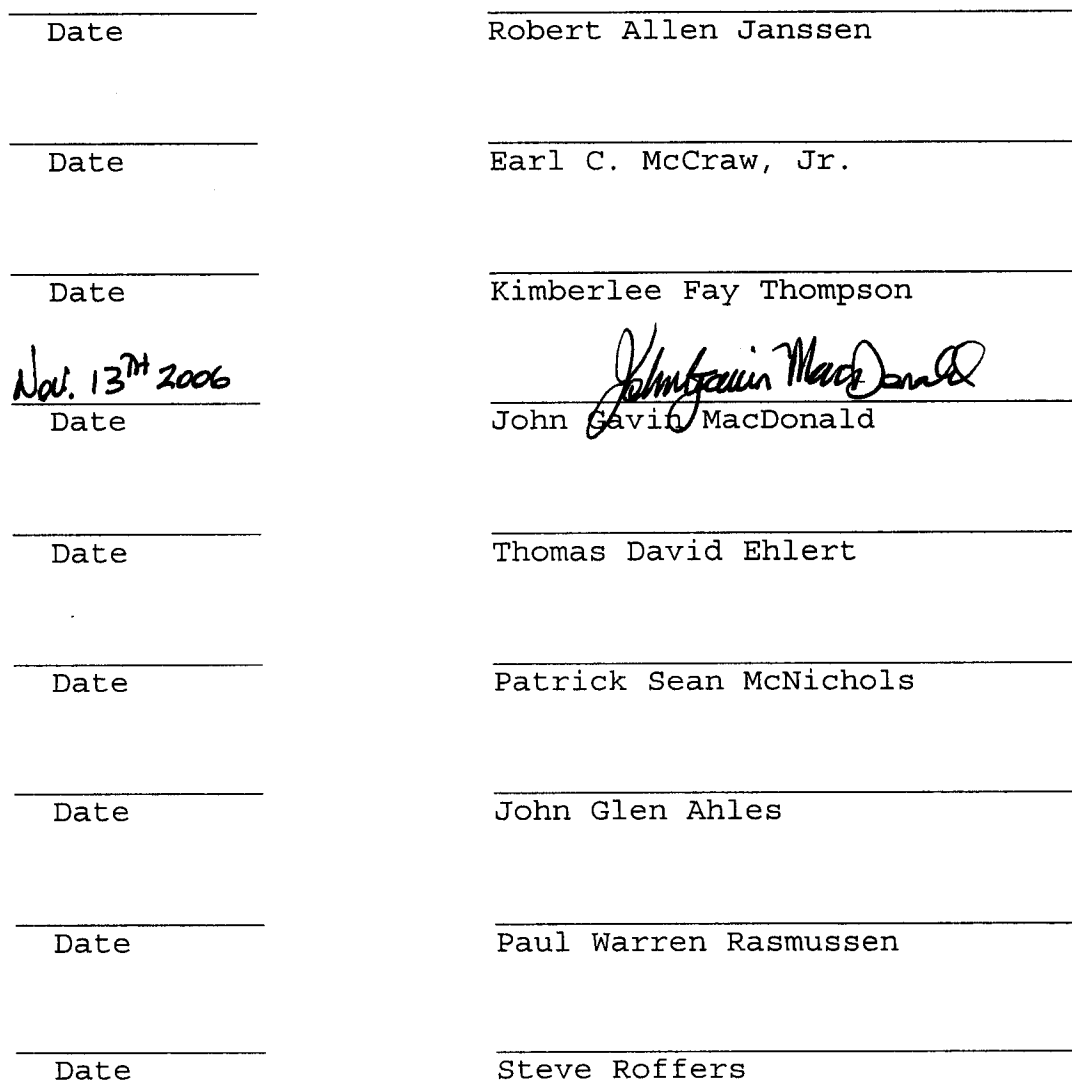 Date Robert Allen Janssen
Date Earl C. McCraw, Jr.
Date Kimberlee Fay Thompson
Nov. 13TH 2006 John Gavin MacDonald
Date John Gavin MacDonald
Date Thomas David Ehlert
Date Patrick Sean McNichols
Date John Glen Ahles
Date Paul Warren Rasmussen
Date Steve Roffers